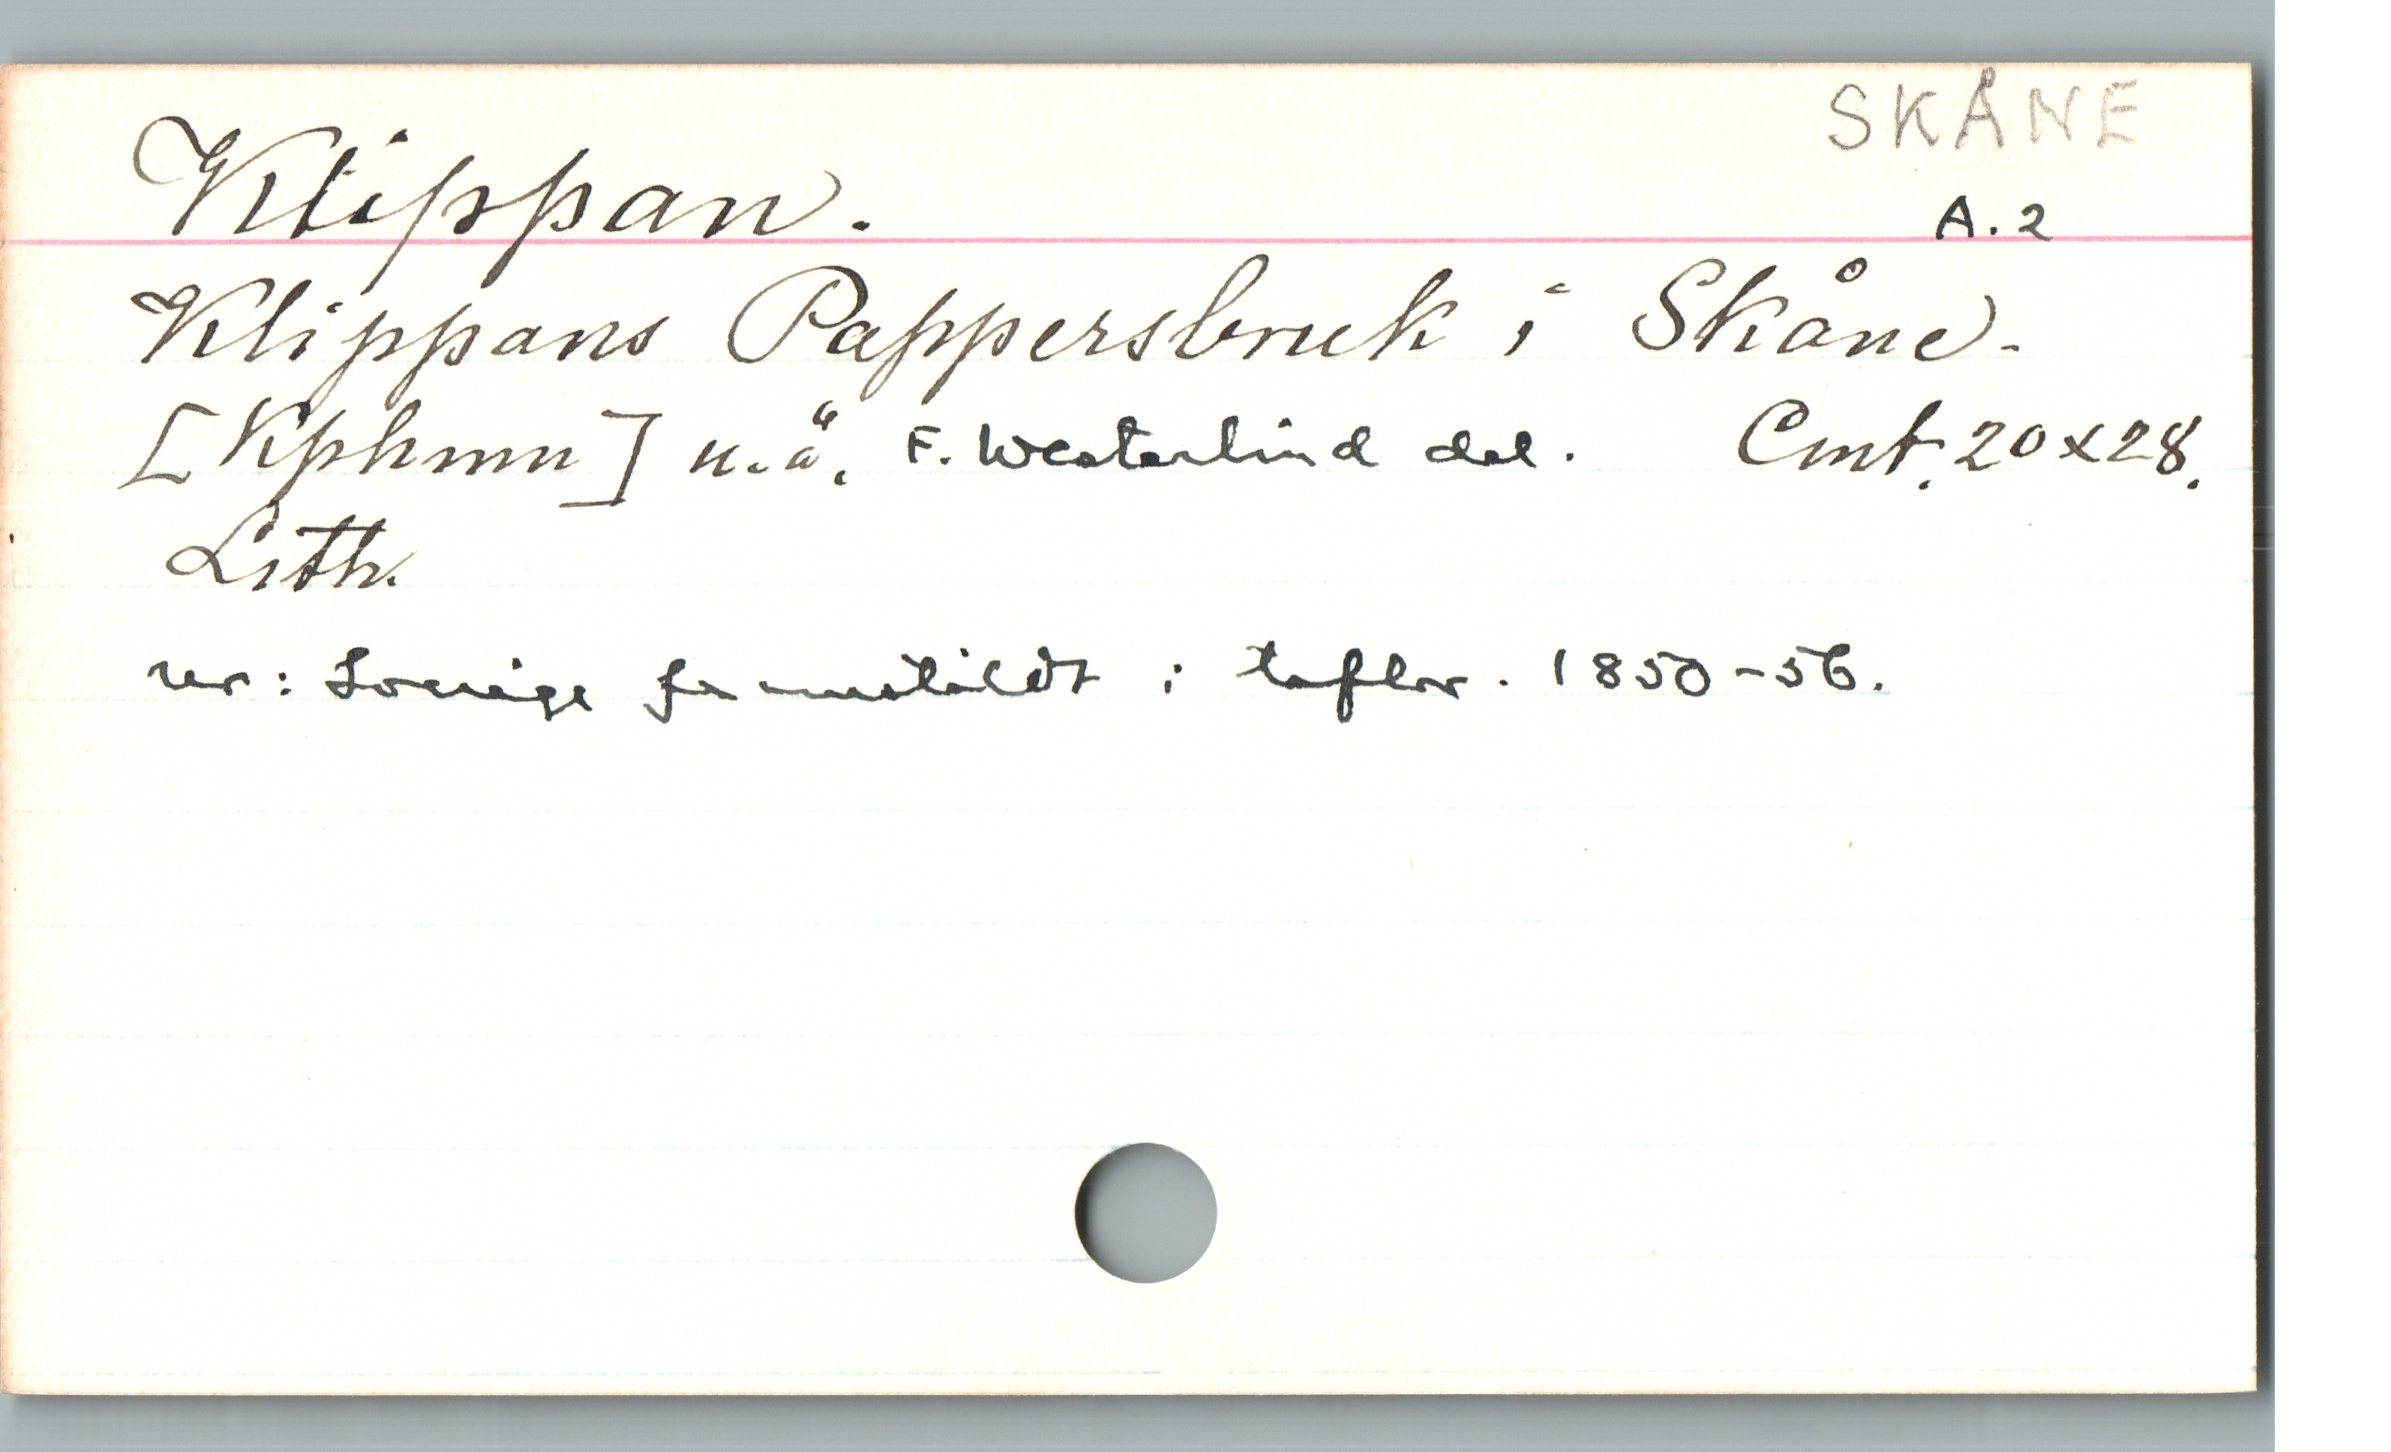 SKÅNE
Klippan.
A. 2
Klippans Pappersbruk i Skåne.
[Kphmn] u.å. F. Westerlind del. Cmt. 20x28.
Lith.
ur: Sverige framställdt i taflor. 1850-56.